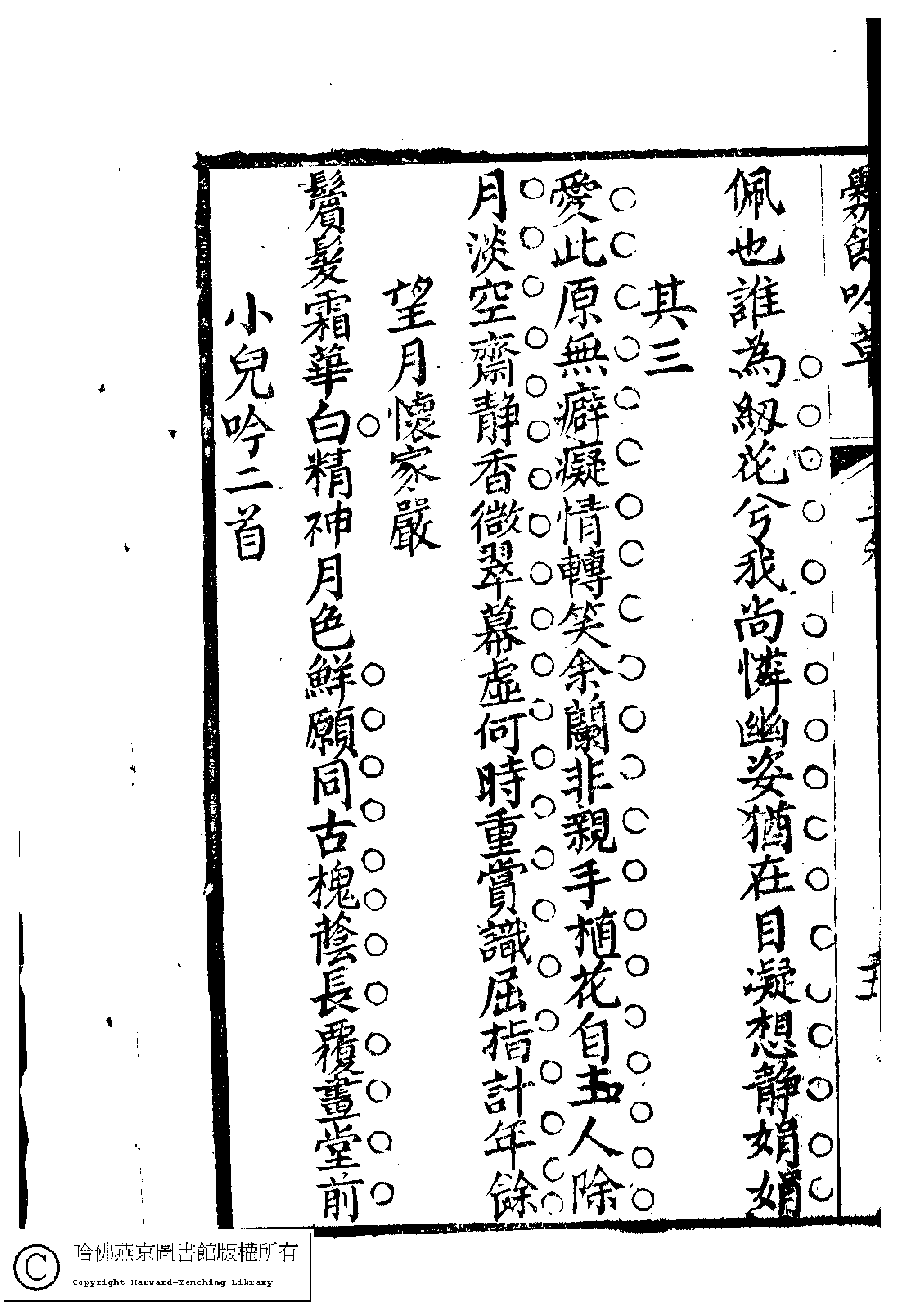 吟草
佩也誰為紉花兮我尚憐幽姿猶在目凝想静娟娟
其三
愛此原無癖癡情轉笑余蘭非親手植花自人除
月淡空齋静香微翠幕虛何時重賞識屈指計年餘
望月懷家嚴
鬢髮霜華白精神月色鮮願同古槐蔭長覆畫堂前
小兒吟二首
哈佛燕京圖書館版權所有
Copyright Harvard-Yenching Library